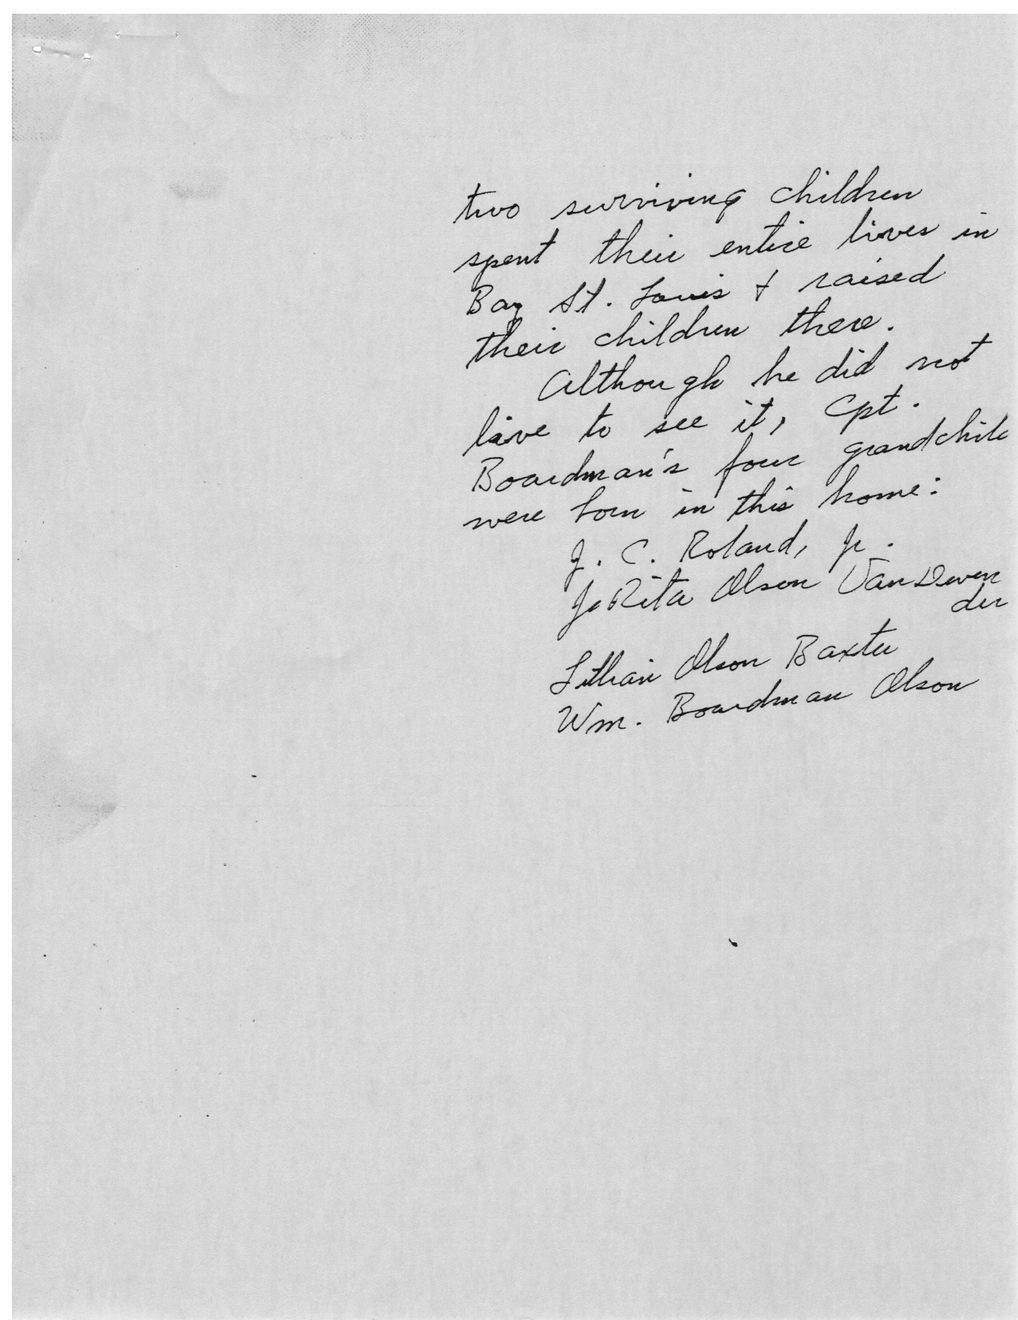 two surviving children
spent their entire lives in
Bay St. Louis & raised
their children there.
Although he did not
live to see it, Cpt.
Boardman's four grandchild
were born in this home:
J. C. Roland, Jr.
JoRita Olson VanDeven
der
Lillian Olson Baxter
Wm. Boardman Olson